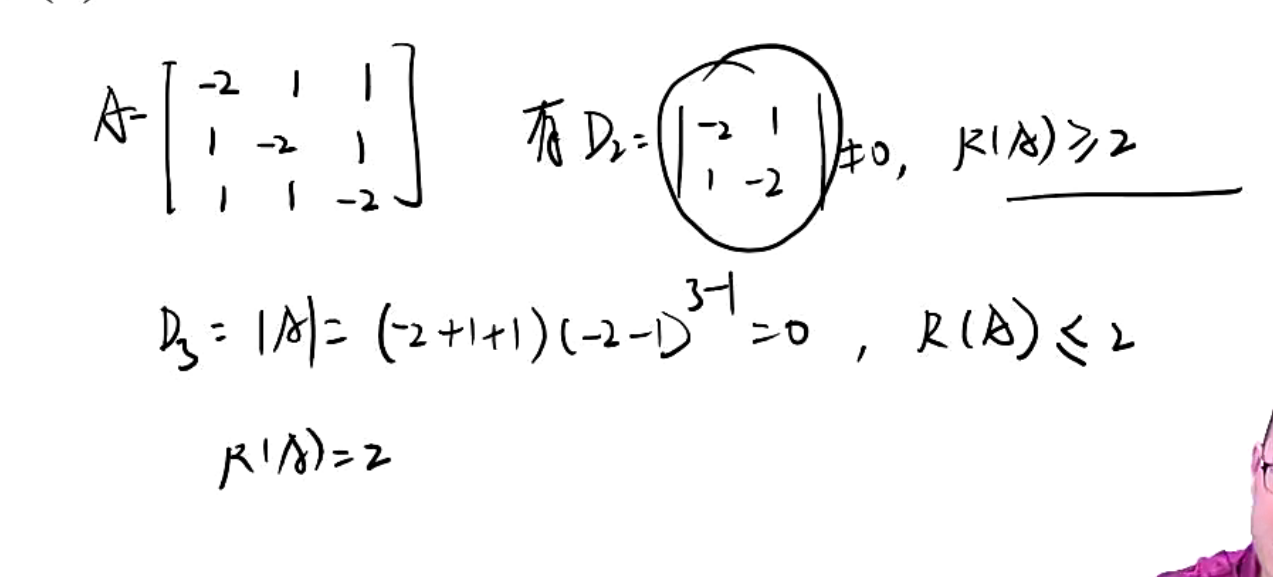 A = [ -2 1 1 ; 1 -2 1 ; 1 1 -2 ] 有 D₂ = | -2 1 ; 1 -2 | ≠ 0, R(A) ≥ 2
D₃ = |A| = (-2+1+1)(-2-1)³⁻¹ = 0 , R(A) ≤ 2
R(A) = 2